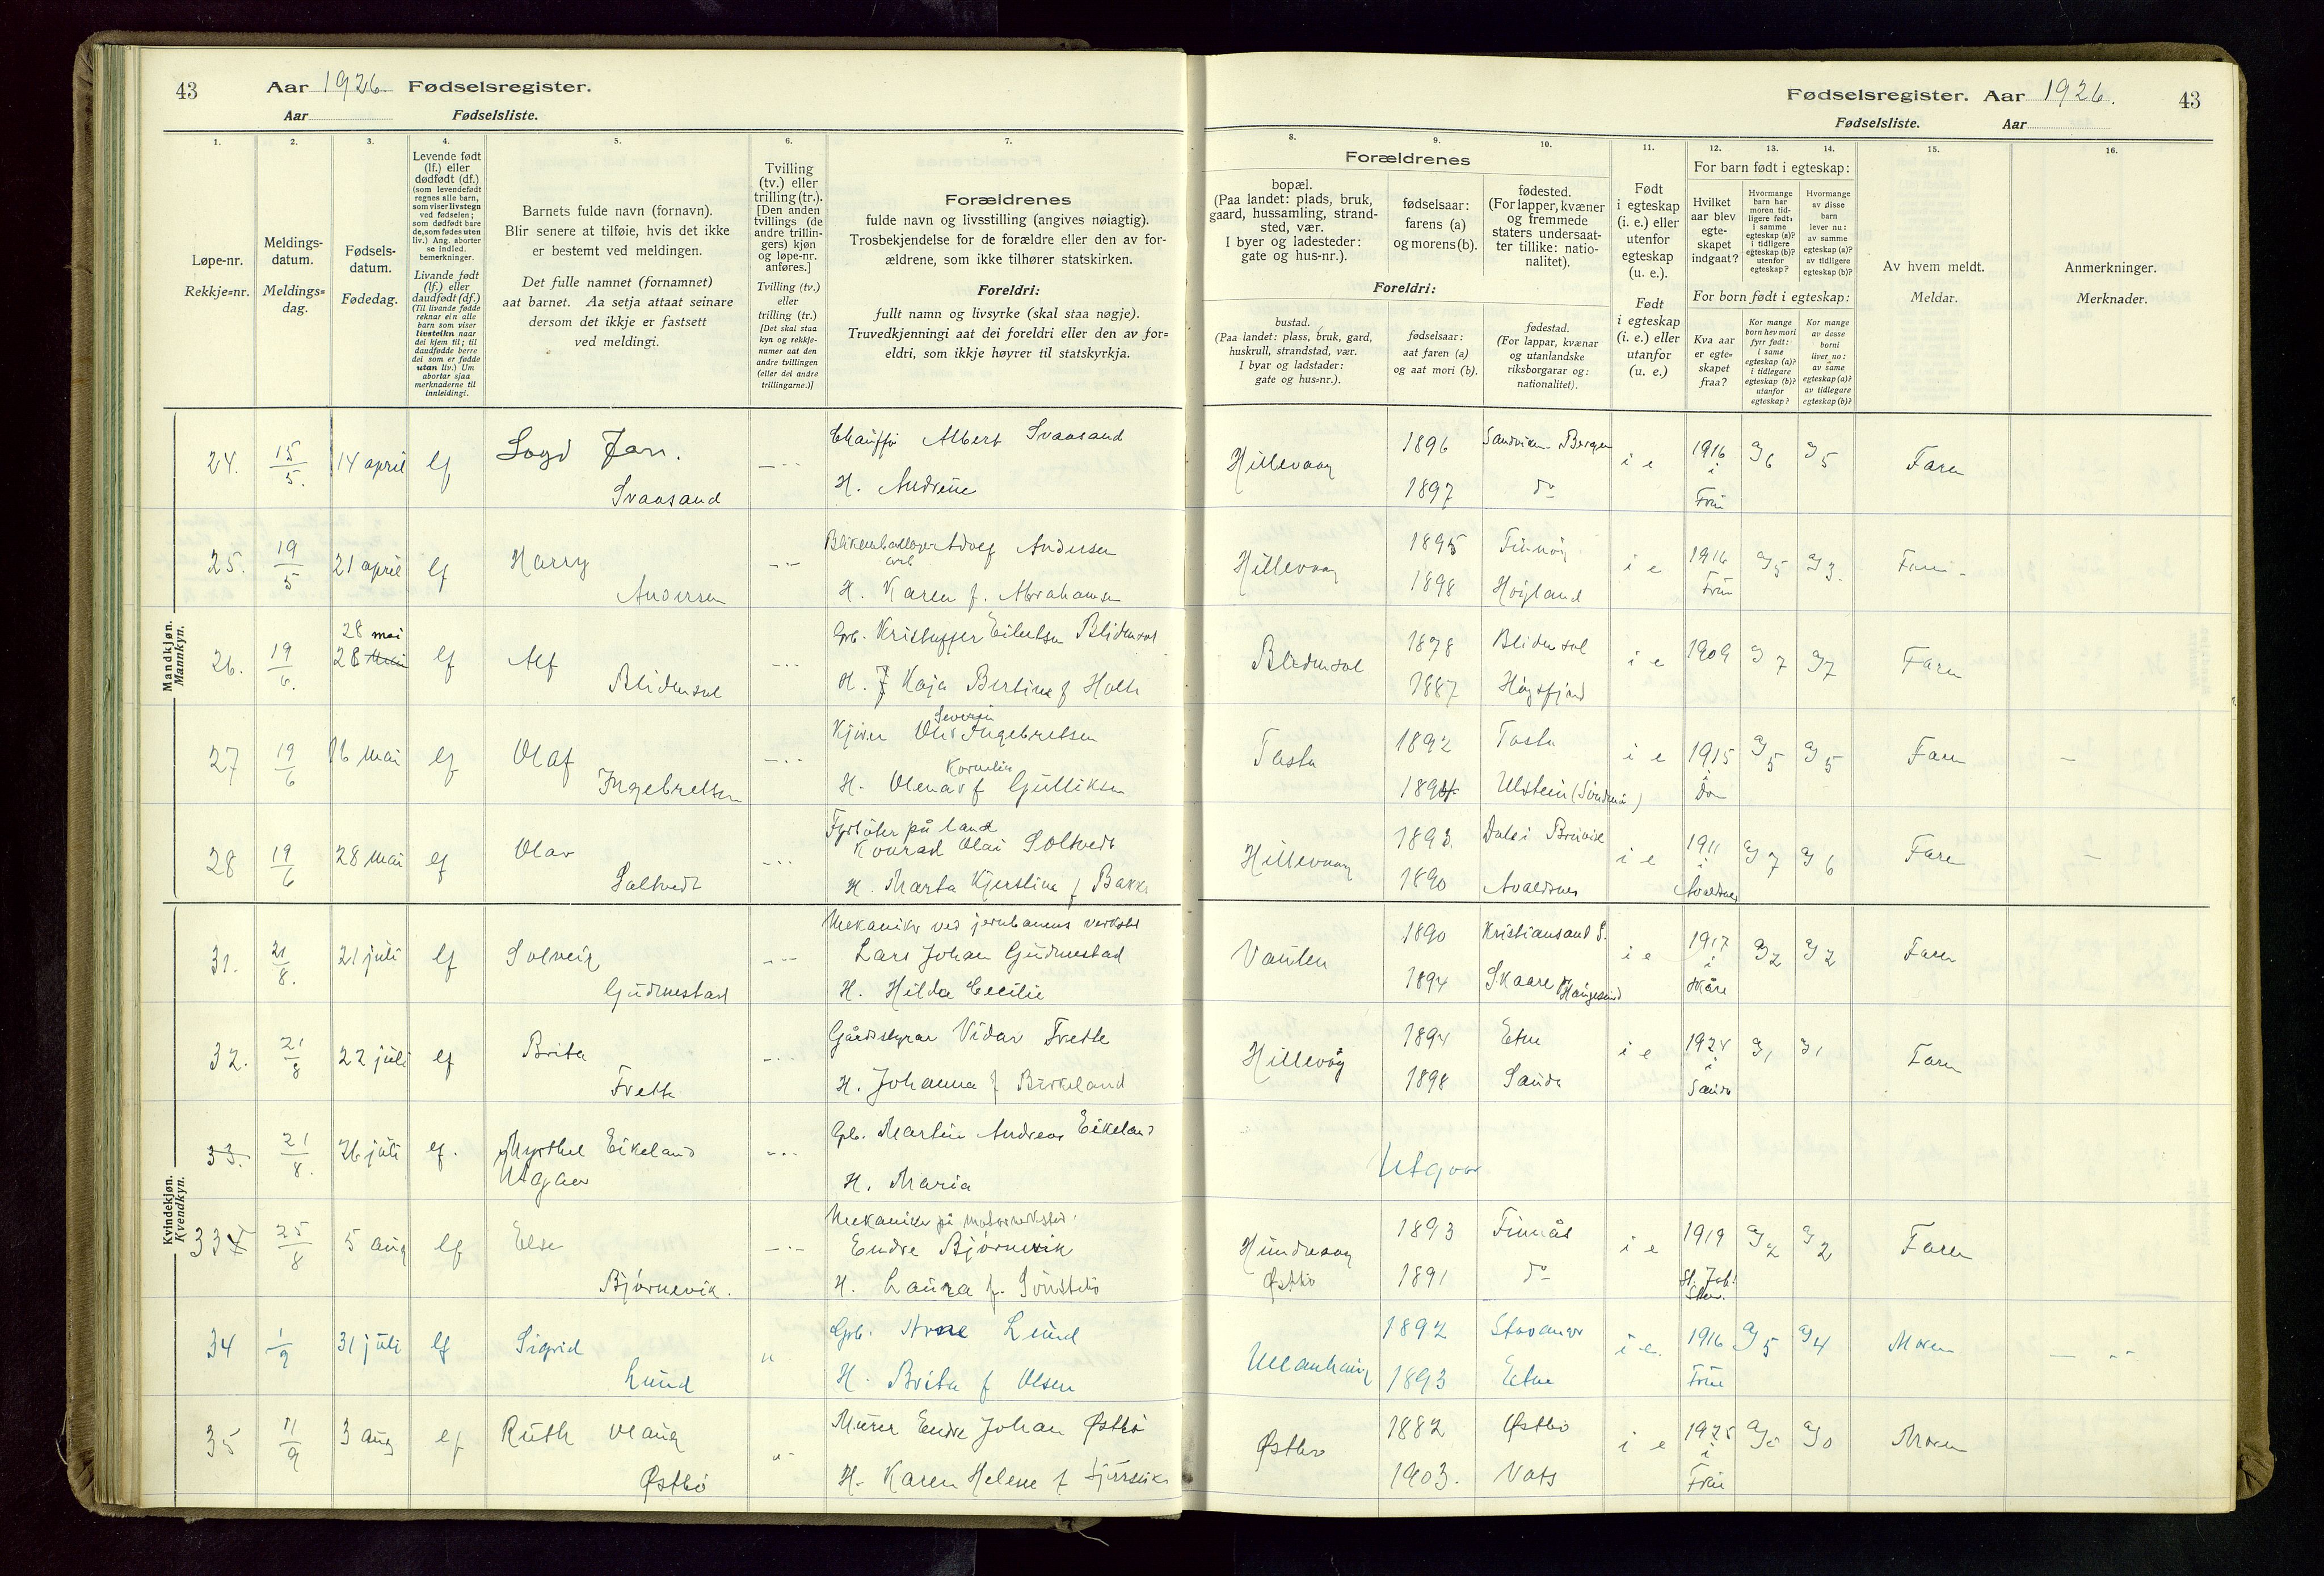 43
Aar 1926. Fødselsregister.
Aar
Fødselsliste.
1.
2.
3.
4.
5.
6.
7.
Løpe-nr.
Rekkje=nr.
Meldings-
datum.
Meldings=
dag.
Fødsels-
datum.
Fødedag.
Levende født
(lf.) eller
dødfødt (df.)
(som levendefødt
regnes alle barn,
som viser livstegn
ved fødselen;
som dødfødt bare
de, som fødes uten
liv.) Ang. aborter
se indled.
bemerkninger.
Livande født
(lf.) eller
daudfødt (df.)
(Til livande fødde
reknar ein alle
barn som viser
livsteikn naar
dei kjem til; til
daudfødde berre
dei som er fødde
utan liv.) Um
abortar sjaa
merknaderne til
innleidingi.
Barnets fulde navn (fornavn).
Blir senere at tilføie, hvis det ikke
er bestemt ved meldingen.
Det fulle namnet (fornamnet)
aat barnet. Aa setja attaat seinare
dersom det ikkje er fastsett
ved meldingi.
Tvilling
(tv.) eller
trilling (tr.).
[Den anden
tvillings (de
andre trillin-
gers) kjøn
og løpe-nr.
anføres.]
Tvilling (tv.)
eller
trilling (tr.)
[Det skal staa
kyn og rekkje-
numer aat den
andre tvillingen
(eller dei andre
trillingarne.)]
Forældrenes
fulde navn og livsstilling (angives nøiagtig).
Trosbekjendelse for de forældre eller den av for-
ældrene, som ikke tilhører statskirken.
Foreldri:
fullt namn og livsyrke (skal staa nøgje).
Truvedkjenningi aat dei foreldri eller den av for=
eldri, som ikkje høyrer til statskyrkja.
Mandkjøn.
Mannkyn.
24. 15/5. 14 april lf
Jan.
Svaasand
Albert Svaasand
H. Andrine
25. 19/5 21 april lf Harry
Andersen
Adolf Andersen
H. Karen f. Abrahamsen
26. 19/6. 28 mai
28 mai lf Alf
Blidensol
Grb. Kristoffer Eilertsen Blidensol
H. Kaja Bertine f Holte
27 19/6 16 mai lf Olaf
Ingebretsen
Severin
Ole Ingebretsen
Kornelia
H. Olena f Gulliksen
28 19/6 28 mai lf Olav
Saltvedt
Fyrbøter på land
Konrad Olai Soltvedt
H. Marta Kjerstine f Bakke
Kvindekjøn.
Kvendkyn.
31. 21/8. 21 juli lf Solveig
Gudmestad
Mekaniker ved jernbanens verksted
Lars Johan Gudmestad
H. Hilda Cecilie
32. 21/8 22 juli lf Brita
Frette
Gårdstyrar Vidar Frette
H. Johanna f Birkeland
33. 21/8. 26 juli lf.
Eikeland
Utgaar
Grb. Martin Andreas Eikeland
H. Maria
33 25/8 5 aug lf Else
Bjørnevik.
Mekaniker på motorverksted.
Endre Bjørnevik
H. Laura f.
34 1/9 31 juli lf Sigrid
Lund
Grb. Arne Lund
H. Brita f Olsen
35 11/9 3 aug lf Ruth Olaug
Østbø
Murer Endre Johan Østbø
H. Karen Helene f
Fødselsregister. Aar 1926. 43
Fødselsliste. Aar
8.
9.
10.
11.
12.
13.
14.
15.
16.
Forældrenes
bopæl.
(Paa landet: plads, bruk,
gaard, hussamling, strand-
sted, vær.
I byer og ladesteder:
gate og hus-nr.).
fødselsaar:
farens (a)
og morens (b).
fødested.
(For lapper, kvæner
og fremmede
staters undersaat-
ter tillike: natio-
nalitet).
Foreldri:
bustad.
(Paa landet: plass, bruk, gard,
huskrull, strandstad, vær.
I byar og ladstader:
gate og hus=nr.).
fødselsaar:
aat faren (a)
og aat mori (b).
fødestad.
(For lappar, kvænar
og utanlandske
riksborgarar og:
nationalitet).
Født
i egteskap
(i. e.) eller
utenfor
egteskap
(u. e.).
Født
i egteskap
(i. e.) eller
utanfor
(u. e.)
For barn født i egteskap:
Hvilket
aar blev
egte-
skapet
indgaat?
Hvormange
barn har
moren tid-
ligere født:
i samme
egteskap (a)?
i tidligere
egteskap (b)?
utenfor
egteskap?
Hvormange
av disse
barn
lever nu:
av samme
egteskap (a)?
av tidligere
egteskap (b)?
For born født i egteskap:
Kva aar
er egte=
skapet
fraa?
Kor mange
born hev mori
fyrr født:
i same
egteskap (a)?
i tidlegare
egteskap (b)?
utanfor
egteskap?
Kor mange
av desse
borni
liver no:
av same
egteskap (a)?
av tidlegare
egteskap (b)?
Av hvem meldt.
Meldar.
Anmerkninger.
Merknader.
Hillevaag 1896 Sandviken. Bergen i e 1916 a) 6 a) 5 Faren
1897 do i
Frue
Hillevaag 1895 Finnøy i e 1916 a) 5 a) 3. Faren
1898 Høyland Frue
Blidensol 1878 Blidensol i e 1909 a) 7 a) 7 Faren
1887 Høgsfjord
Tasta 1892 Tasta i e 1915 a) 5 a) 5 Faren
1894 Ulstein i
do
Hillevaag 1893. Brevik i e 1911 a) 7 a) 6 Faren
1890 Avaldsnes i
Avaldsnes
Vaulen 1890 Kristiansand S. i e 1917 a) 2 a) 2 Faren
1894 Skaare Haugesund i
Skåre
Hillevåg 1894 Etne i e 1924 a) 1 a) 1 Faren
1898 Sauda i
Sauda
Utgaar
Hundvaag 1893 Finnås i e 1919 a) 2 a) 2 Faren
Østbø 1891 do
Ullanhaug 1892 Stavanger i e. 1916 a) 5 a) 4 Moren
1893 Etne Frue
Østbø 1882 Østbø i e 1925 a) 0 a) 0 Moren
1903. Vats i
Frue